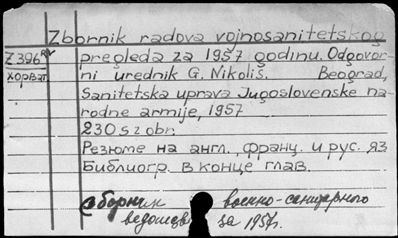 Zbornik radova vojnosanitetskog
Z396
хорват
pregleda za 1957 godinu. Odgovor-
ni urednik G. Nikoliš. Beograd,
Sanitetska uprava Jugoslovenske na-
rodne armije, 1957
230 s
Резюме на англ., франц. и рус. яз
Библиогр. в конце глав.
Сборник военно-санитарного
за 1957г.